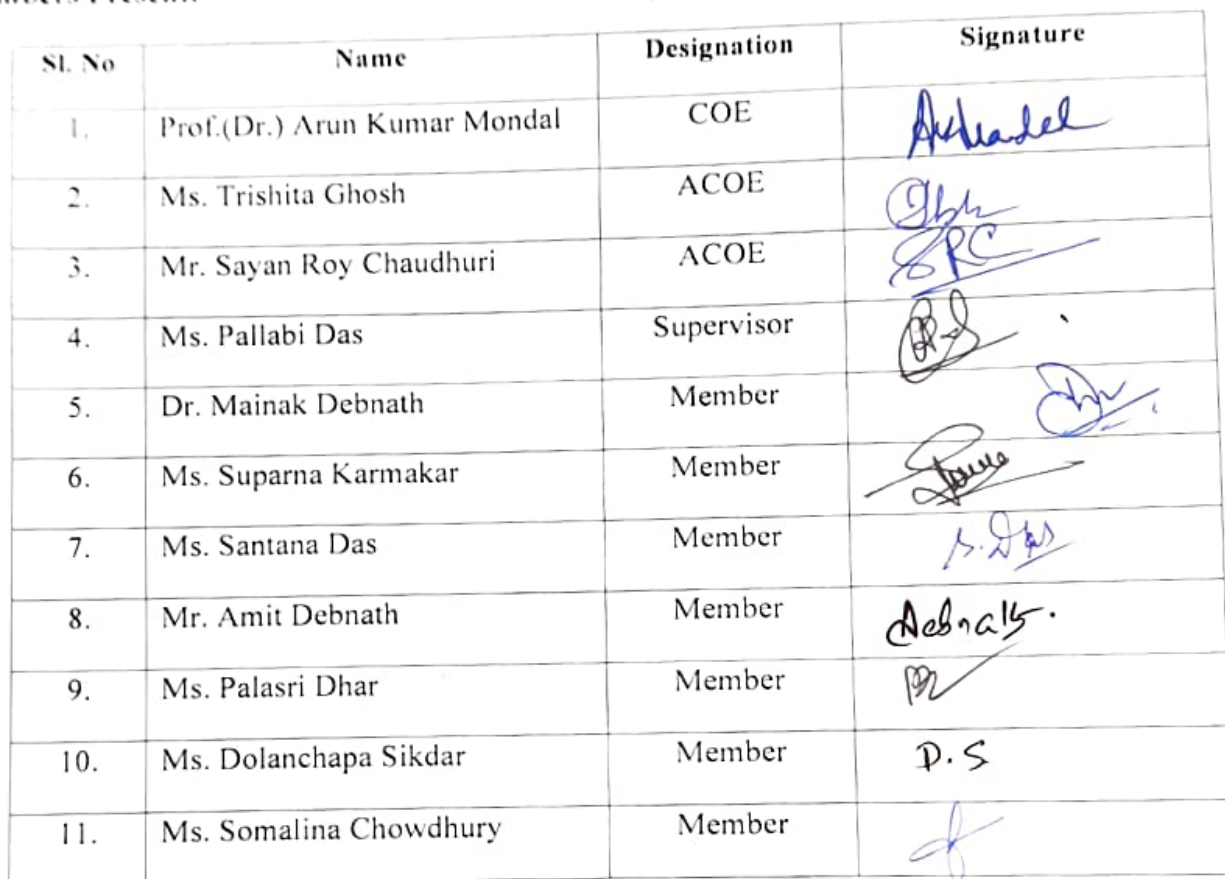 Sl. No Name Designation Signature
1. Prof.(Dr.) Arun Kumar Mondal COE
2. Ms. Trishita Ghosh ACOE
3. Mr. Sayan Roy Chaudhuri ACOE SRC
4. Ms. Pallabi Das Supervisor
5. Dr. Mainak Debnath Member
6. Ms. Suparna Karmakar Member
7. Ms. Santana Das Member S. Das
8. Mr. Amit Debnath Member
9. Ms. Palasri Dhar Member
10. Ms. Dolanchapa Sikdar Member D. S
11. Ms. Somalina Chowdhury Member